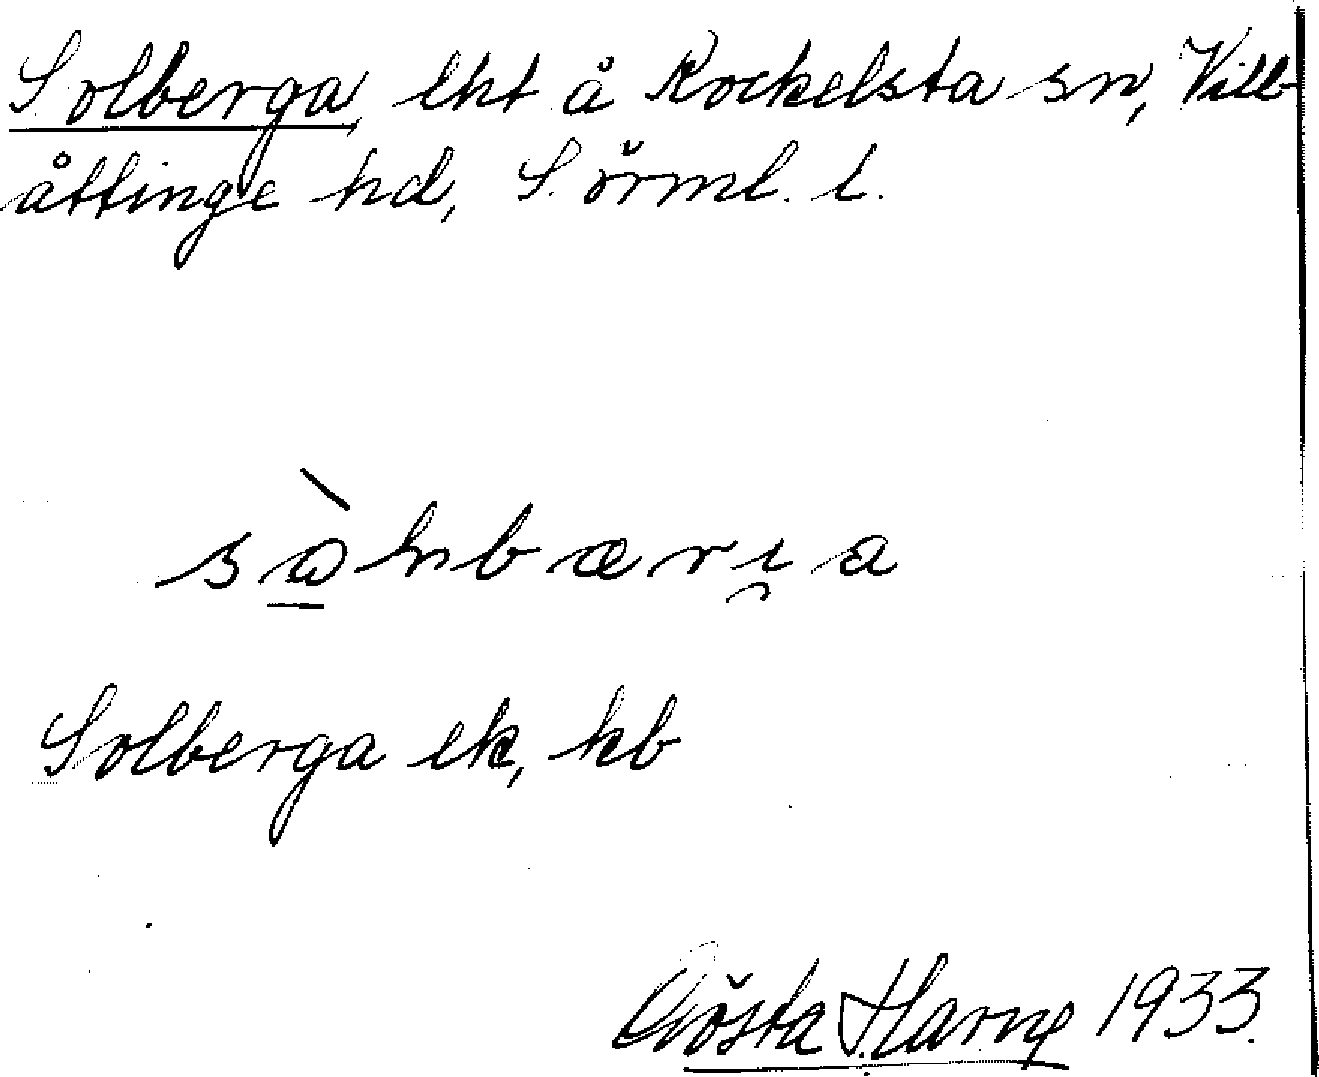 Solberga, lht å Rockelsta sn, Vill-
åttinge hd, Sörml. l.
Solberga ek, kb
Gösta Harne 1933.